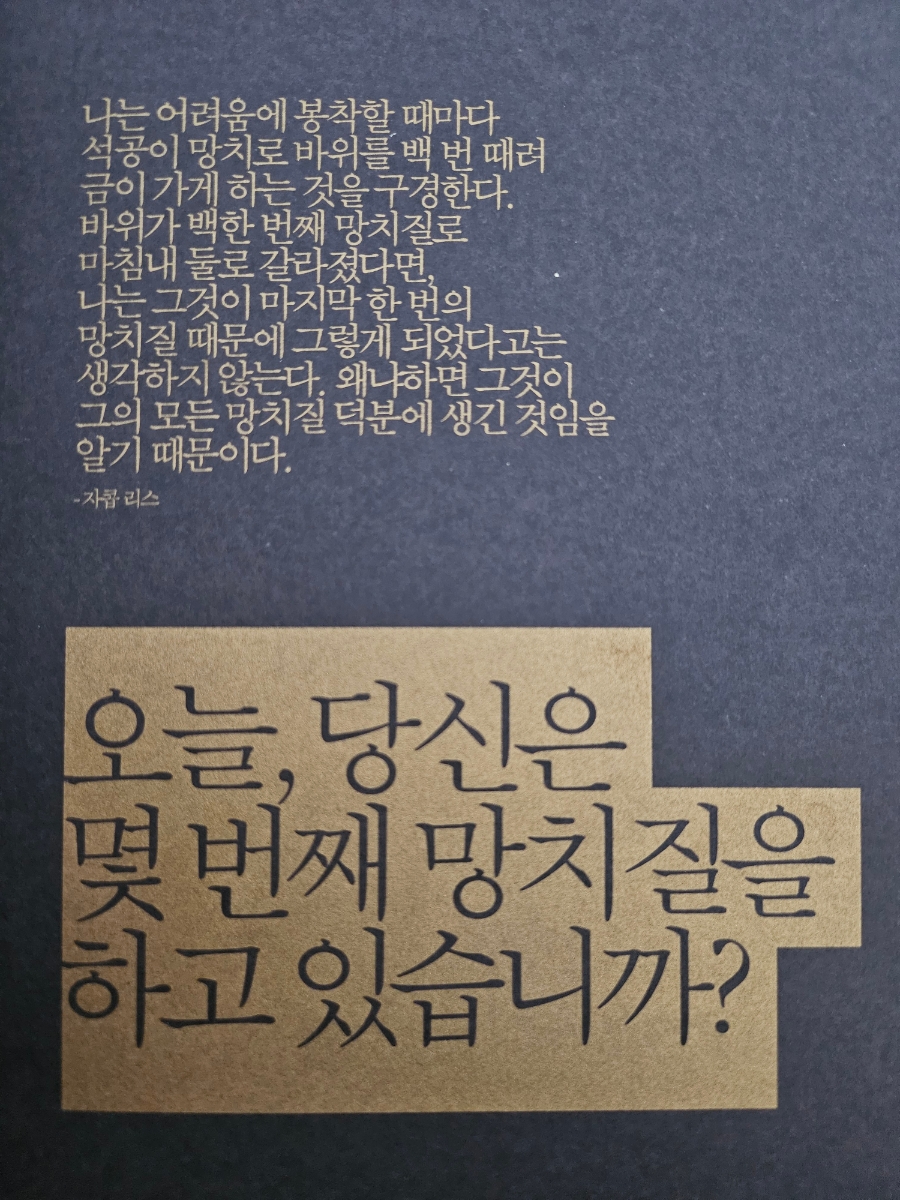 나는 어려움에 봉착할 때마다
석공이 망치로 바위를 백 번 때려
금이 가게 하는 것을 구경한다.
바위가 백한 번째 망치질로
마침내 둘로 갈라졌다면,
나는 그것이 마지막 한 번의
망치질 때문에 그렇게 되었다고는
생각하지 않는다. 왜냐하면 그것이
그의 모든 망치질 덕분에 생긴 것임을
알기 때문이다.
- 자콥 리스
오늘, 당신은
몇 번째 망치질을
하고 있습니까?